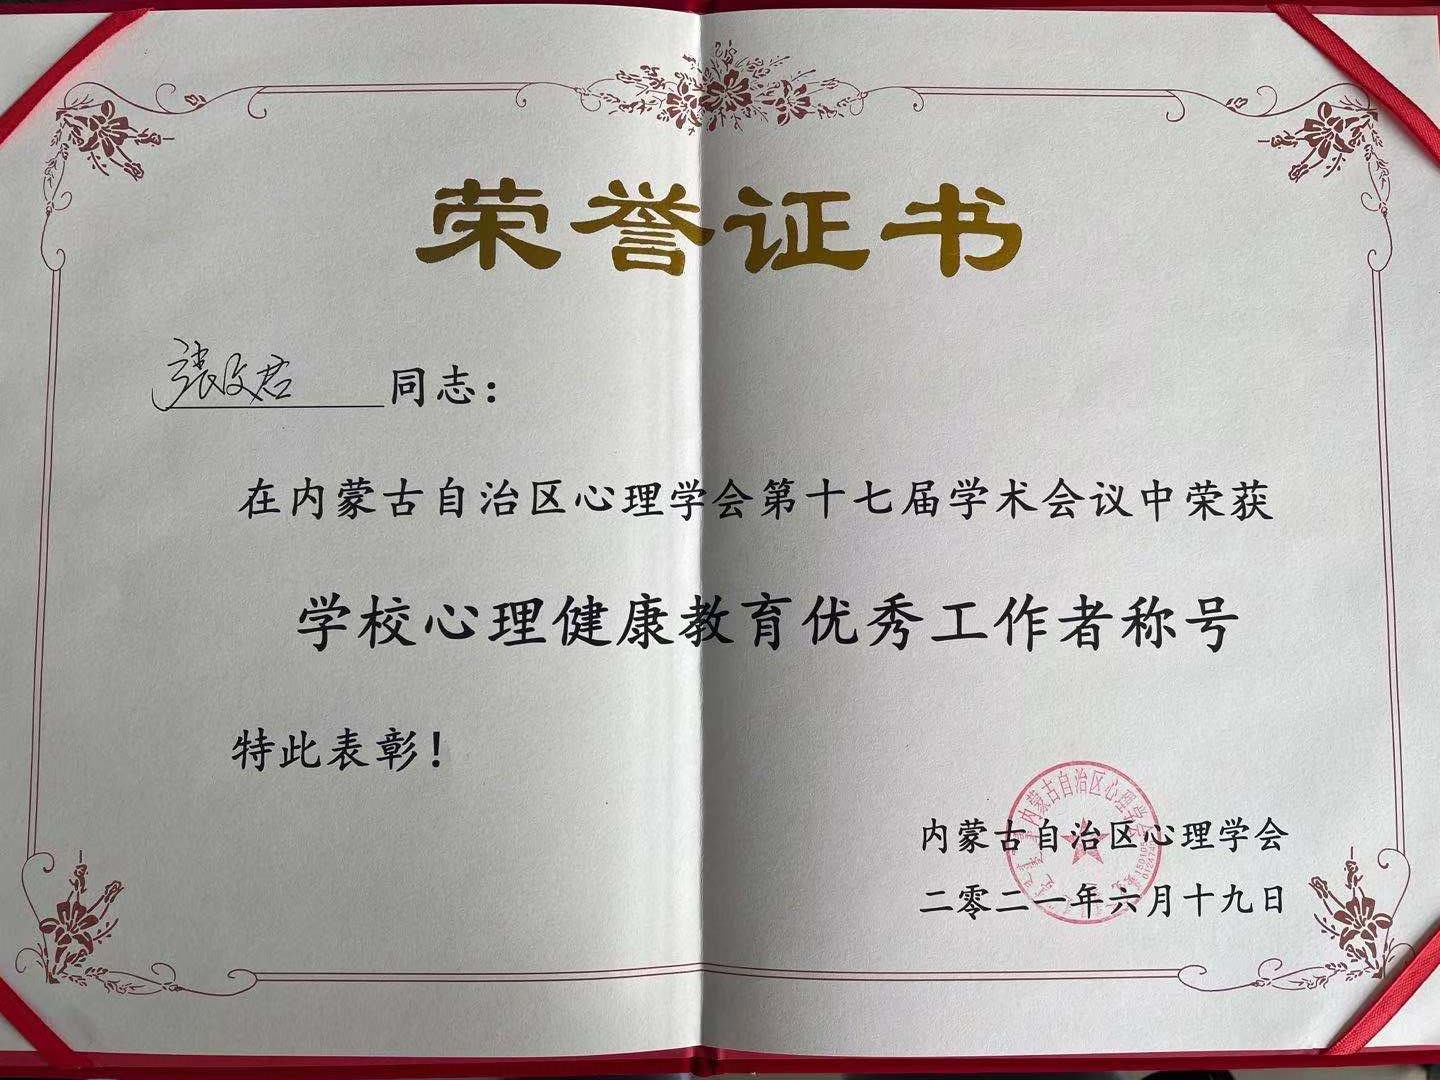 荣誉证书
张文君 同志：
在内蒙古自治区心理学会第十七届学术会议中荣获
学校心理健康教育优秀工作者称号
特此表彰！
内蒙古自治区心理学会
内蒙古自治区心理学会
二零二一年六月十九日